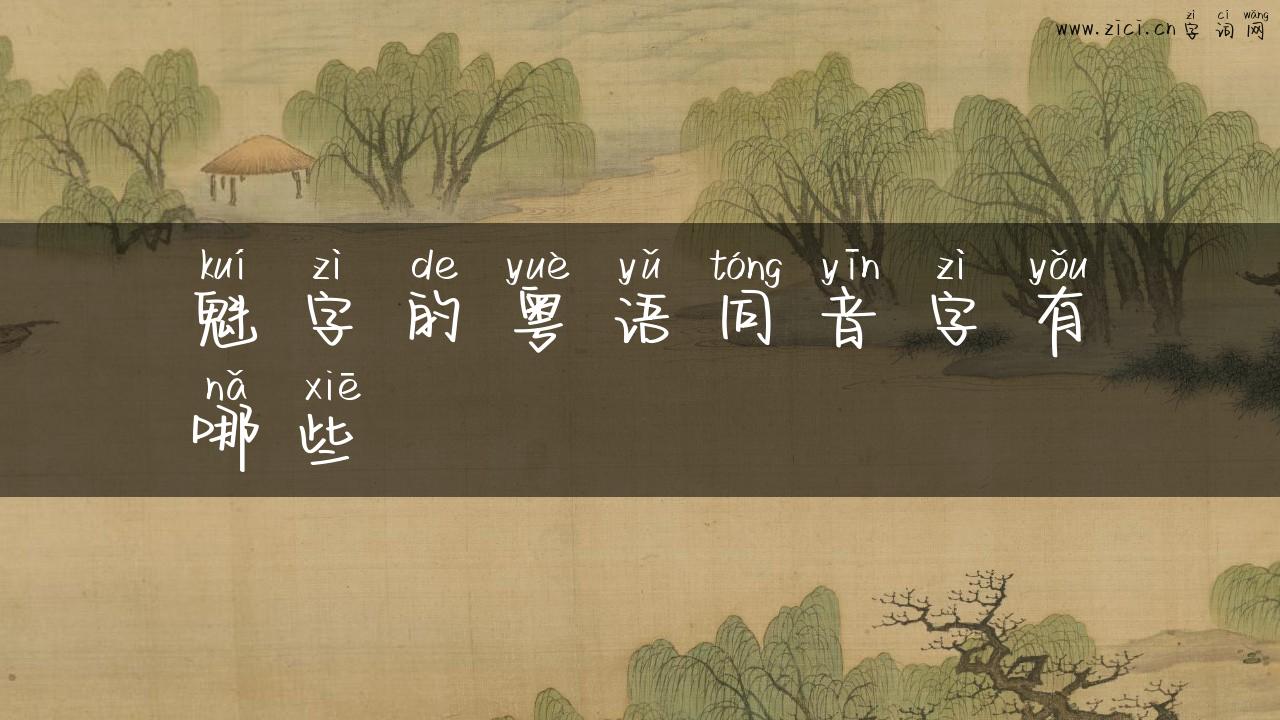 zì cí wǎng
www.zici.cn字词网
kuí zì de yuè yǔ tóng yīn zì yǒu
魁字的粤语同音字有
nǎ xiē
哪些